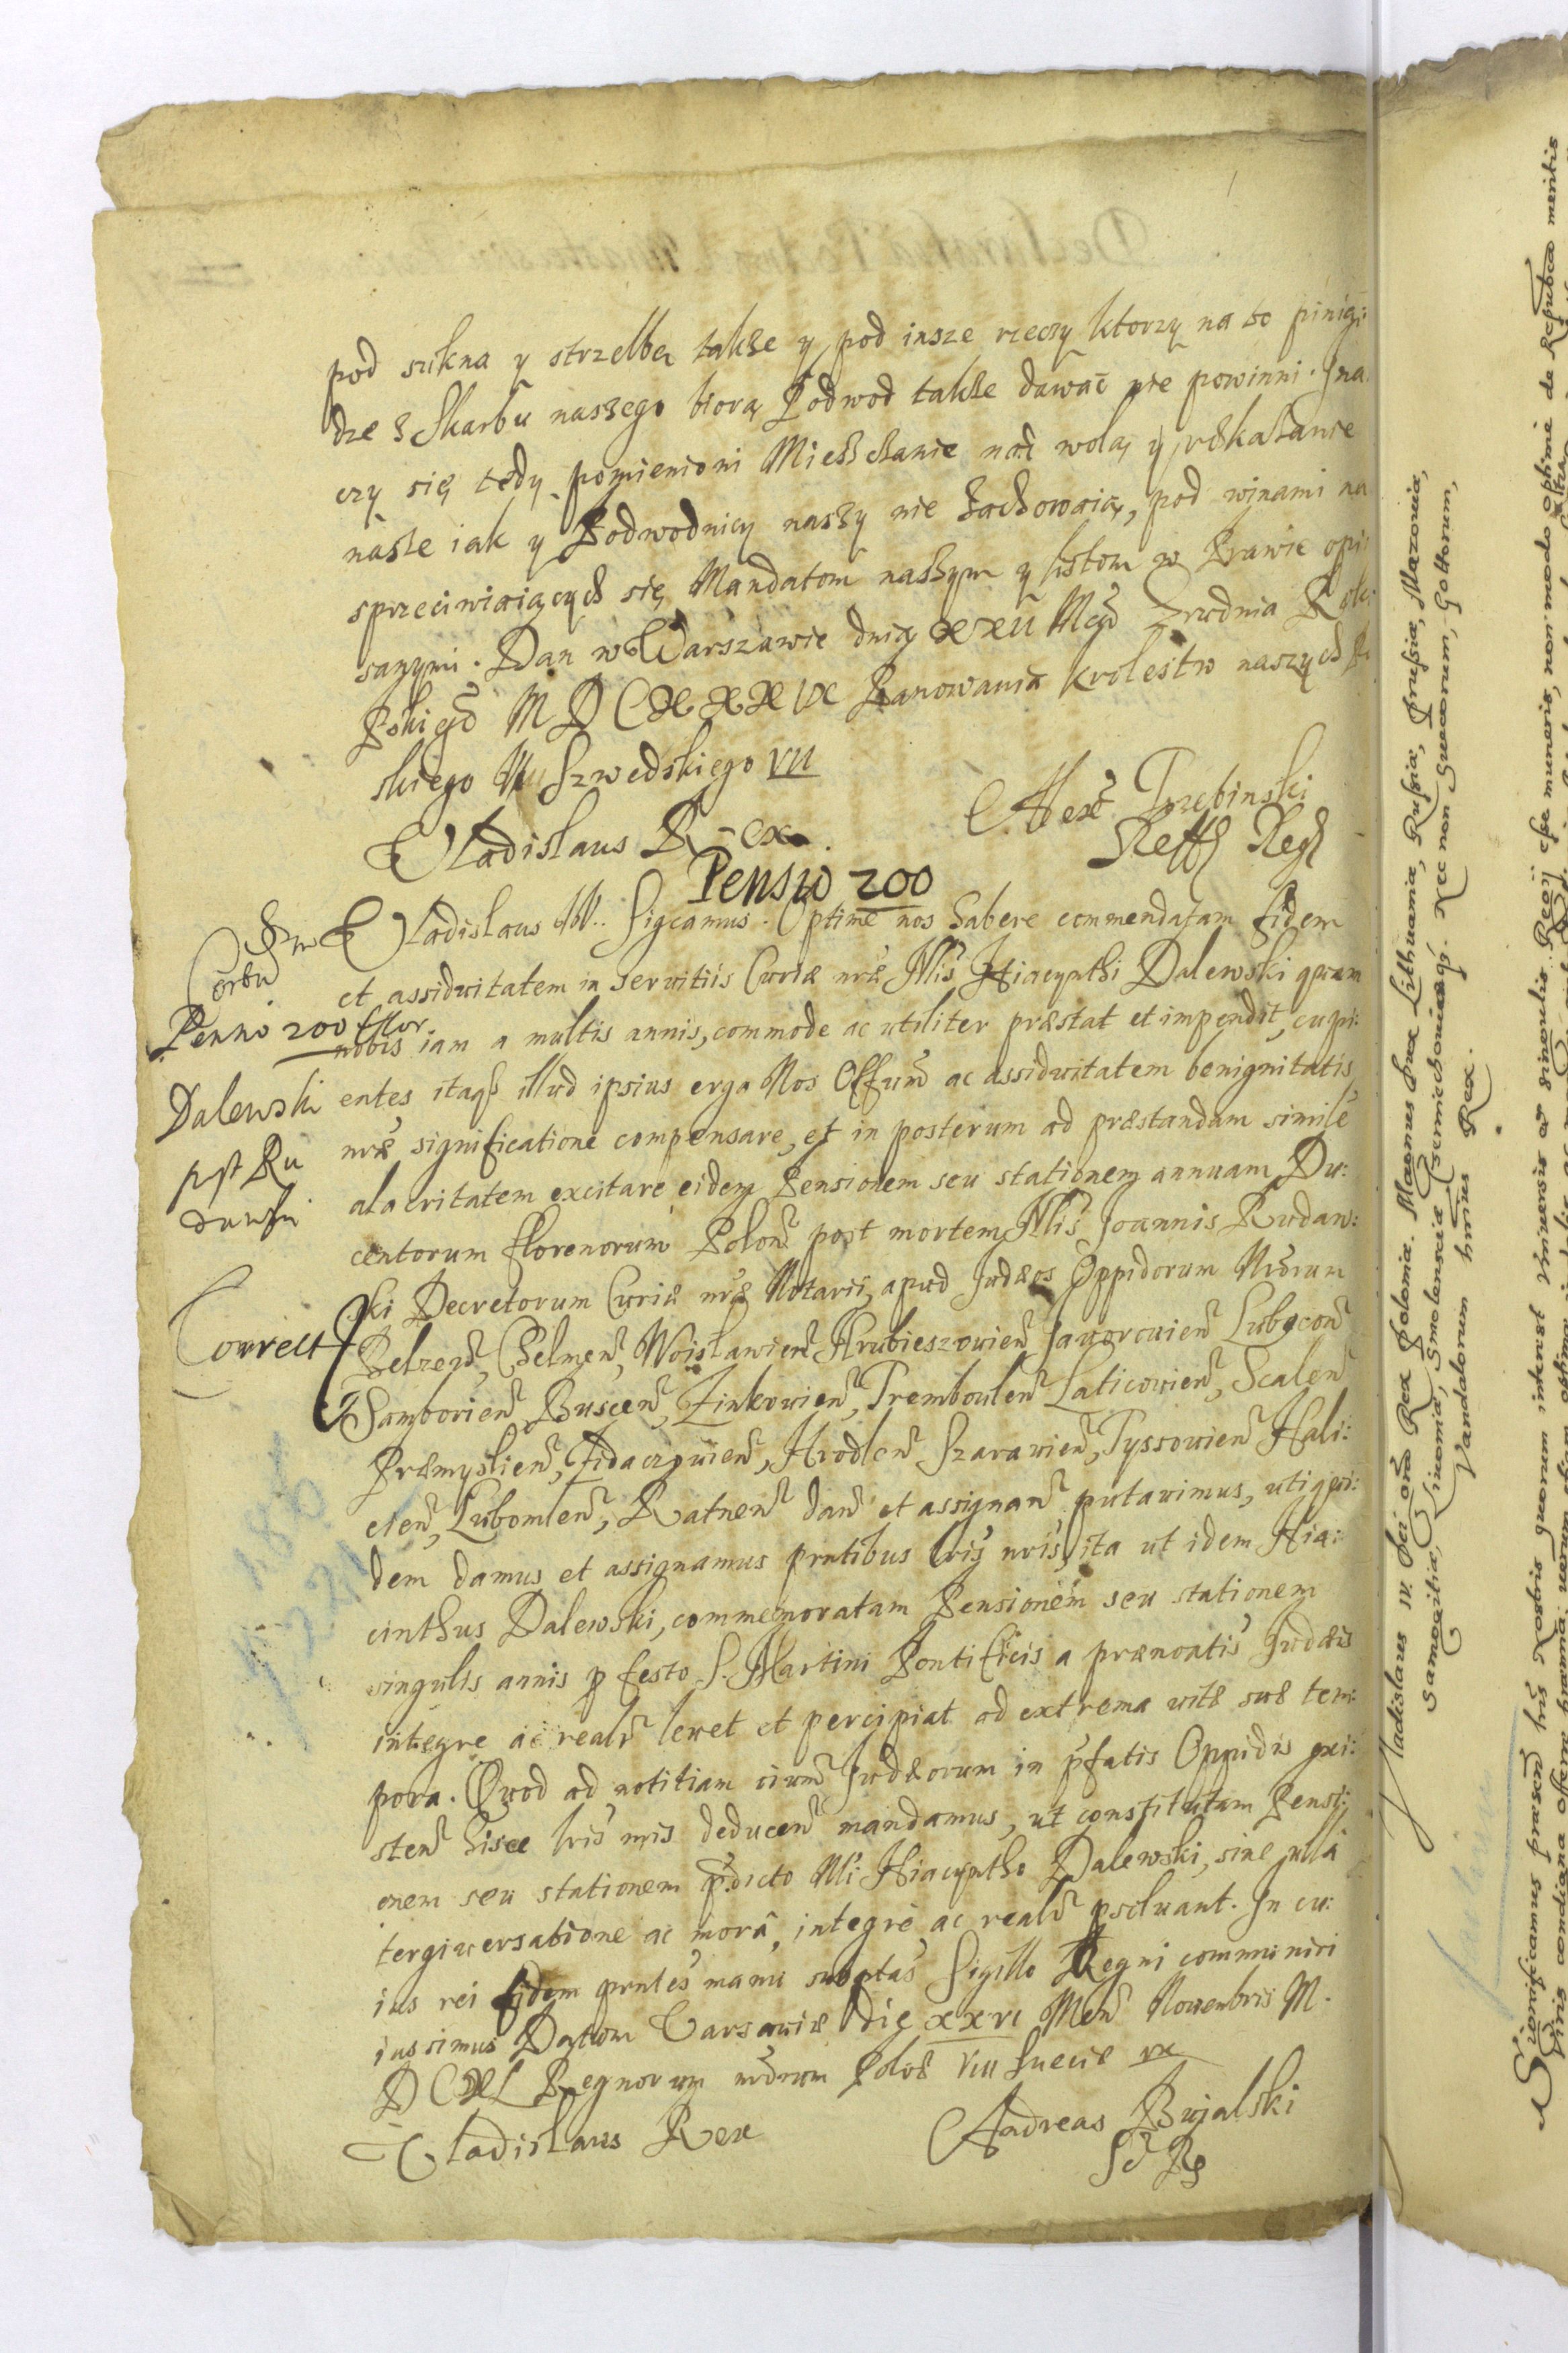 pod sukna y strzelbę takze y pod insze rzeczy ktorzy na to pinią:
dze z Skarbu naszego biorą Podwod takze dawać nie powinni. Ina
czy się tedy pomienioni Mieszczanie nad wolą y rozkazanie
nasze iak y Podwodnicy naszy nie zachowaią, pod winami na
sprzeciwiaiących się Mandatom naszym y listom w Prawie opi:
sanymi. Dan w Warszawie dnia XXII Mcā Grudnia Roku
Pskiego MDCXXXIX Panowania Krolestw naszych
skiego Szwedskiego VII
Vladislaus Rex.
Alexr Trzebinski
Reffs Regs
Pensio 200
Vladislaus IV. Sigcamus. Optime nos habere commendatam fidem
et assiduitatem in servitiis Curiæ nræ Nlis Hiacynthi Dalewski quam
nobis iam a multis annis, commode ac utiliter præstat et impendit, cupi:
entes itaqz illud ipsius erga Nos Offum ac assiduitatem benignitatis
nræ significatione compensare, et in posterum ad præstandam simile
alacritatem excitare eidem Pensionem seu stationem annuam Du:
centorum florenorum Polon post mortem Nlis Joannis Rudaw:
ski Decretorum Curiæ nræ Notarii, apud Judæos Oppidorum Nrorum
Belzen, Chelmen, Woislawien Hrubieszouien Jauorouien Lubacon
Samborien Buscen, Zinkouien, Trembowlen Laticouien, Scalen
Præmyslien, Zidaczouien, Hrodlen Szarauien, Tyssouien Hali:
cien, Lubomlen, Ratnen dan et assignan putauimus, uti qui:
dem damus et assignamus pntibus lris nris, ita ut idem Hia:
cinthus Dalewski, commemoratam Pensionem seu stationem
singulis annis p festo S. Martini Pontificis a prænoatis Judæis
integre ac realr leuet et percipiat ad extrema uitæ suæ tem:
pora. Quod ad notitiam oium Judæorum in pfatis Oppidis exi:
sten hisce lris nris deducen mandamus, ut constitutam Pensi:
onem seu stationem pdicto Nli Hiacyntho Dalewski, sine ulla
tergiuersatione ac morâ, integrè ac realr psoluant. In cu:
ius rei fidem pntes manu subptas Sigillo Regni communiri
iussimus Datum Varsauiæ die XXVI Men Nouembris M.
DCXL Regnorum nrorum Poloæ VIII Sueciæ IX
Vladislaus Rex
Andreas Bujalski
Sr Rs
Penno 200 fflor.
Dalewski
post Ru
dawski
Correct
Vladislaus IV. Dei gra Rex Poloniæ. Magnus Dux Lithuaniæ, Russiæ, Prussiæ, Mazouiæ,
Samogitiæ, Liuoniæ, Smolensciæ Czerniechouiæqz. Nec non Suecorum, Gottorum,
Vandalorum hrius Rex.
Significamus præsen lris Nostris quorum interest Vniuersis et singulis. Regii esse muneris, non modo optimè de Republica meritis